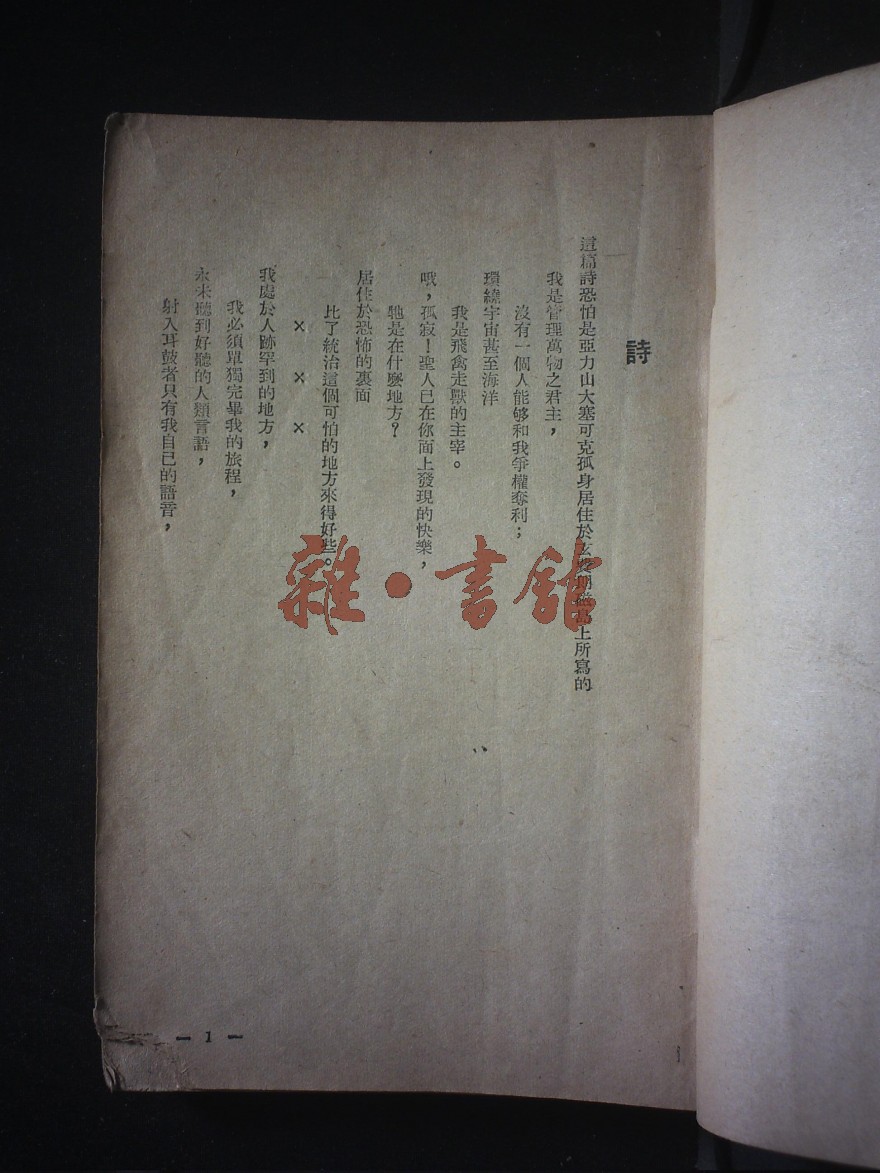 詩
這篇詩恐怕是亞力山大塞可克孤身居住於上所寫的
我是管理萬物之君主，
沒有一個人能够和我爭權奪利；
環繞宇宙甚至海洋
我是飛禽走獸的主宰。
哦，孤寂！聖人已在你面上發現的快樂，
牠是在什麼地方？
居住於恐怖的裏面
比了統治這個可怕的地方來得好些。
×　×　×
我處於人跡罕到的地方，
我必須單獨完畢我的旅程，
永未聽到好聽的人類言語，
射入耳鼓者只有我自己的語音，
— 1 —
雜·書館